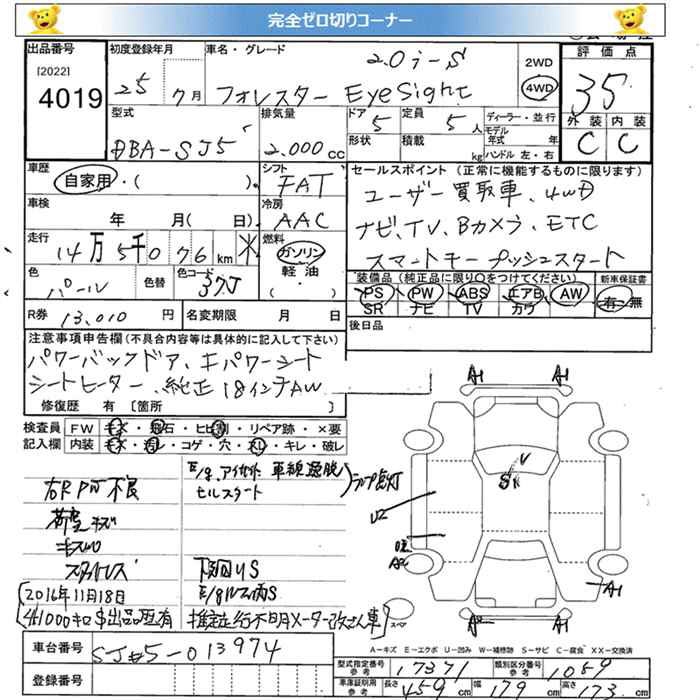 完全ゼロ切りコーナー
出品番号
[2022]
4019
初度登録年月
25 年 7 月
車名・グレード
2.0i-S
フォレスター EyeSight
2WD
4WD
評価点
35
外装 内装
C C
型式
DBA-SJ5
排気量
2.000 cc
ドア
5
形状
定員
5 人
積載
kg
ディーラー・並行
モデル年式 年
ハンドル 左・右
車歴
自家用・( )
シフト
FAT
セールスポイント (正常に機能するものに限ります)
ユーザー買取車、4WD
ナビ、TV、Bカメラ、ETC
スマートキー プッシュスタート
車検
年 月( 日)
冷房
AAC
走行
14万5千076 km
燃料
ガソリン
軽油
( ・ )
色
パール
色替
色コード
37J
装備品 (純正品に限り○をつけてください)
PS PW ABS エアB AW
SR ナビ TV カワ
新車保証書
有・無
R券 13,010 円
名変期限 月 日
後日品
注意事項申告欄 (不具合内容等は具体的に記入して下さい)
パワーバックドア、キパワーシート
シートヒーター、純正18インチAW
修復歴 有 [箇所
検査員
記入欄
FW キズ・飛石・ヒビ割・リペア跡・×要
内装 キズ・汚レ・コゲ・穴・スレ・キレ・破レ
右R PW 不良
荷室キズ
キズ凹
E/g、アイサイト 車線逸脱
セルスタート
ランプ点灯
下回りS
2016年11月18日
推定走行不明メーター改ざん車
車台番号
SJ#5-013974
登録番号
A1 A1
V
S
U2
A2
A1
A2 A1
スペア
A−キズ E−エクボ U−凹み W−補修跡 S−サビ C−腐食 XX−交換済
型式指定番号
参考
17371
類別区分番号
参考
1059
車庫証明用
参考
長さ 459 cm
幅 179 cm
高さ 173 cm